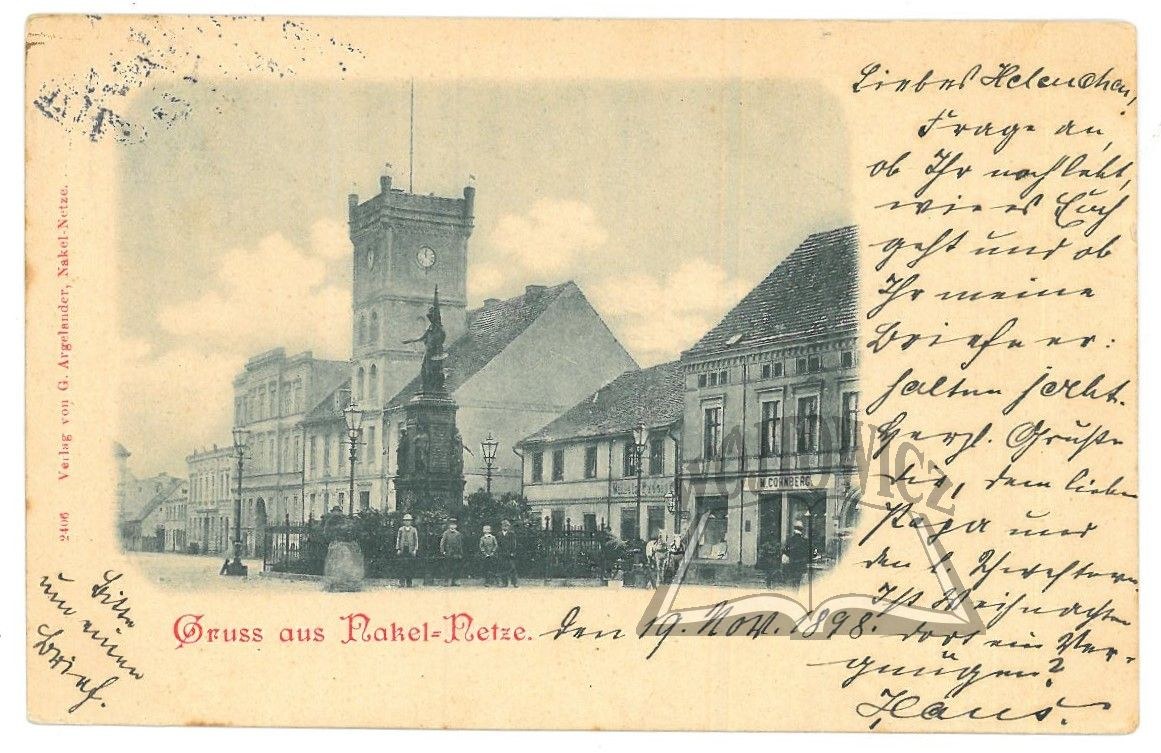 Liebes Helenchen!
Frage an,
ob Ihr noch lebt,
wie es Euch
geht und ob
Ihr meine
Briefe er:
halten habt.
Herzl. Grüße
Dir, dem lieben
Papa und
den l. Schwestern.
Ist Weihnachten
dort ein Ver-
gnügen?
Hans.
2406 Verlag von G. Argelander, Nakel-Netze.
W. CORNBERG
Gruss aus Nakel-Netze. den 19. Nov. 1898.
Bitte
um einen
Brief.
WÓJTOWICZ